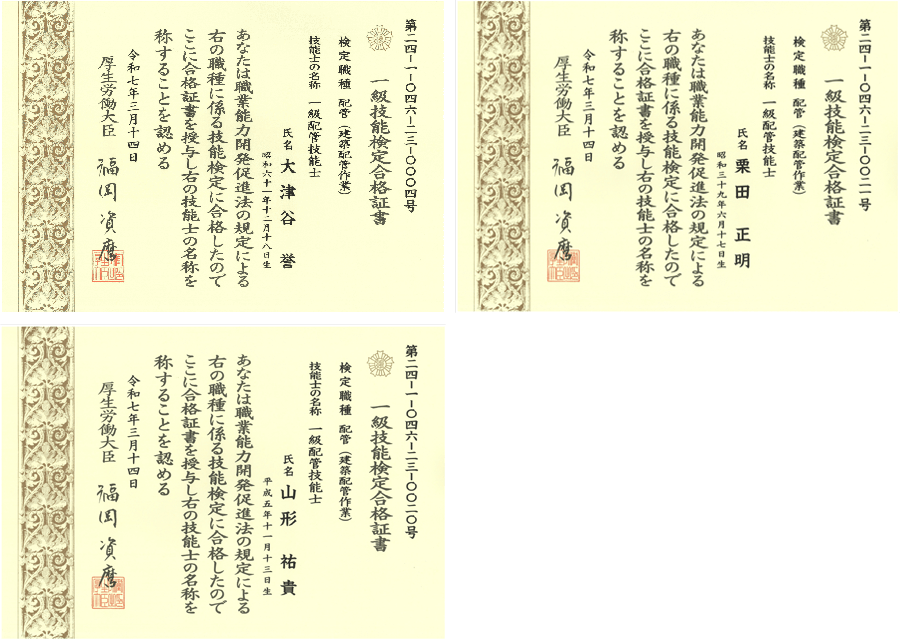 第二四-一-〇四六-二三-〇〇〇四号
一級技能検定合格証書
検定職種 配管(建築配管作業)
技能士の名称 一級配管技能士
氏名 大津谷 誉
昭和六十一年十二月十八日生
あなたは職業能力開発促進法の規定による
右の職種に係る技能検定に合格したので
ここに合格証書を授与し右の技能士の名称を
称することを認める
令和七年三月十四日
厚生労働大臣 福岡資麿
第二四-一-〇四六-二三-〇〇二一号
一級技能検定合格証書
検定職種 配管(建築配管作業)
技能士の名称 一級配管技能士
氏名 栗田 正明
昭和三十九年六月十七日生
あなたは職業能力開発促進法の規定による
右の職種に係る技能検定に合格したので
ここに合格証書を授与し右の技能士の名称を
称することを認める
令和七年三月十四日
厚生労働大臣 福岡資麿
第二四-一-〇四六-二三-〇〇二〇号
一級技能検定合格証書
検定職種 配管(建築配管作業)
技能士の名称 一級配管技能士
氏名 山形 祐貴
平成五年十一月十三日生
あなたは職業能力開発促進法の規定による
右の職種に係る技能検定に合格したので
ここに合格証書を授与し右の技能士の名称を
称することを認める
令和七年三月十四日
厚生労働大臣 福岡資麿